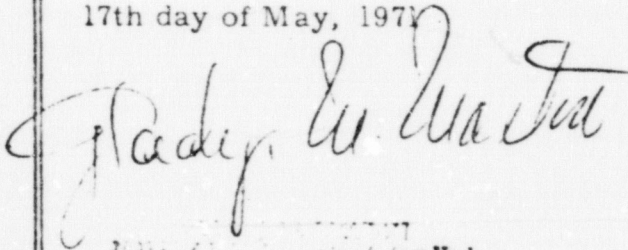 17th day of May, 1971
Gladys M. Martin